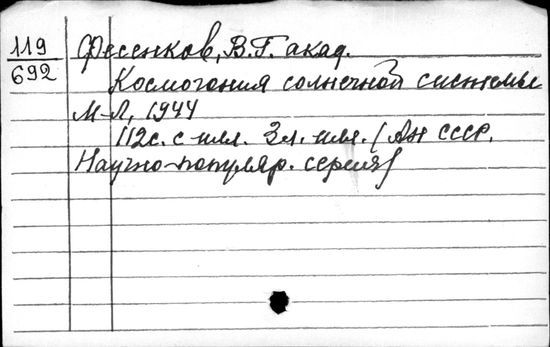 119
692
Фесенков, В.Г. акад.
Космогония солнечной системы
М-Л, 1944
112с. с илл. 3л. илл. (АН СССР.
Научно-популяр. серия)